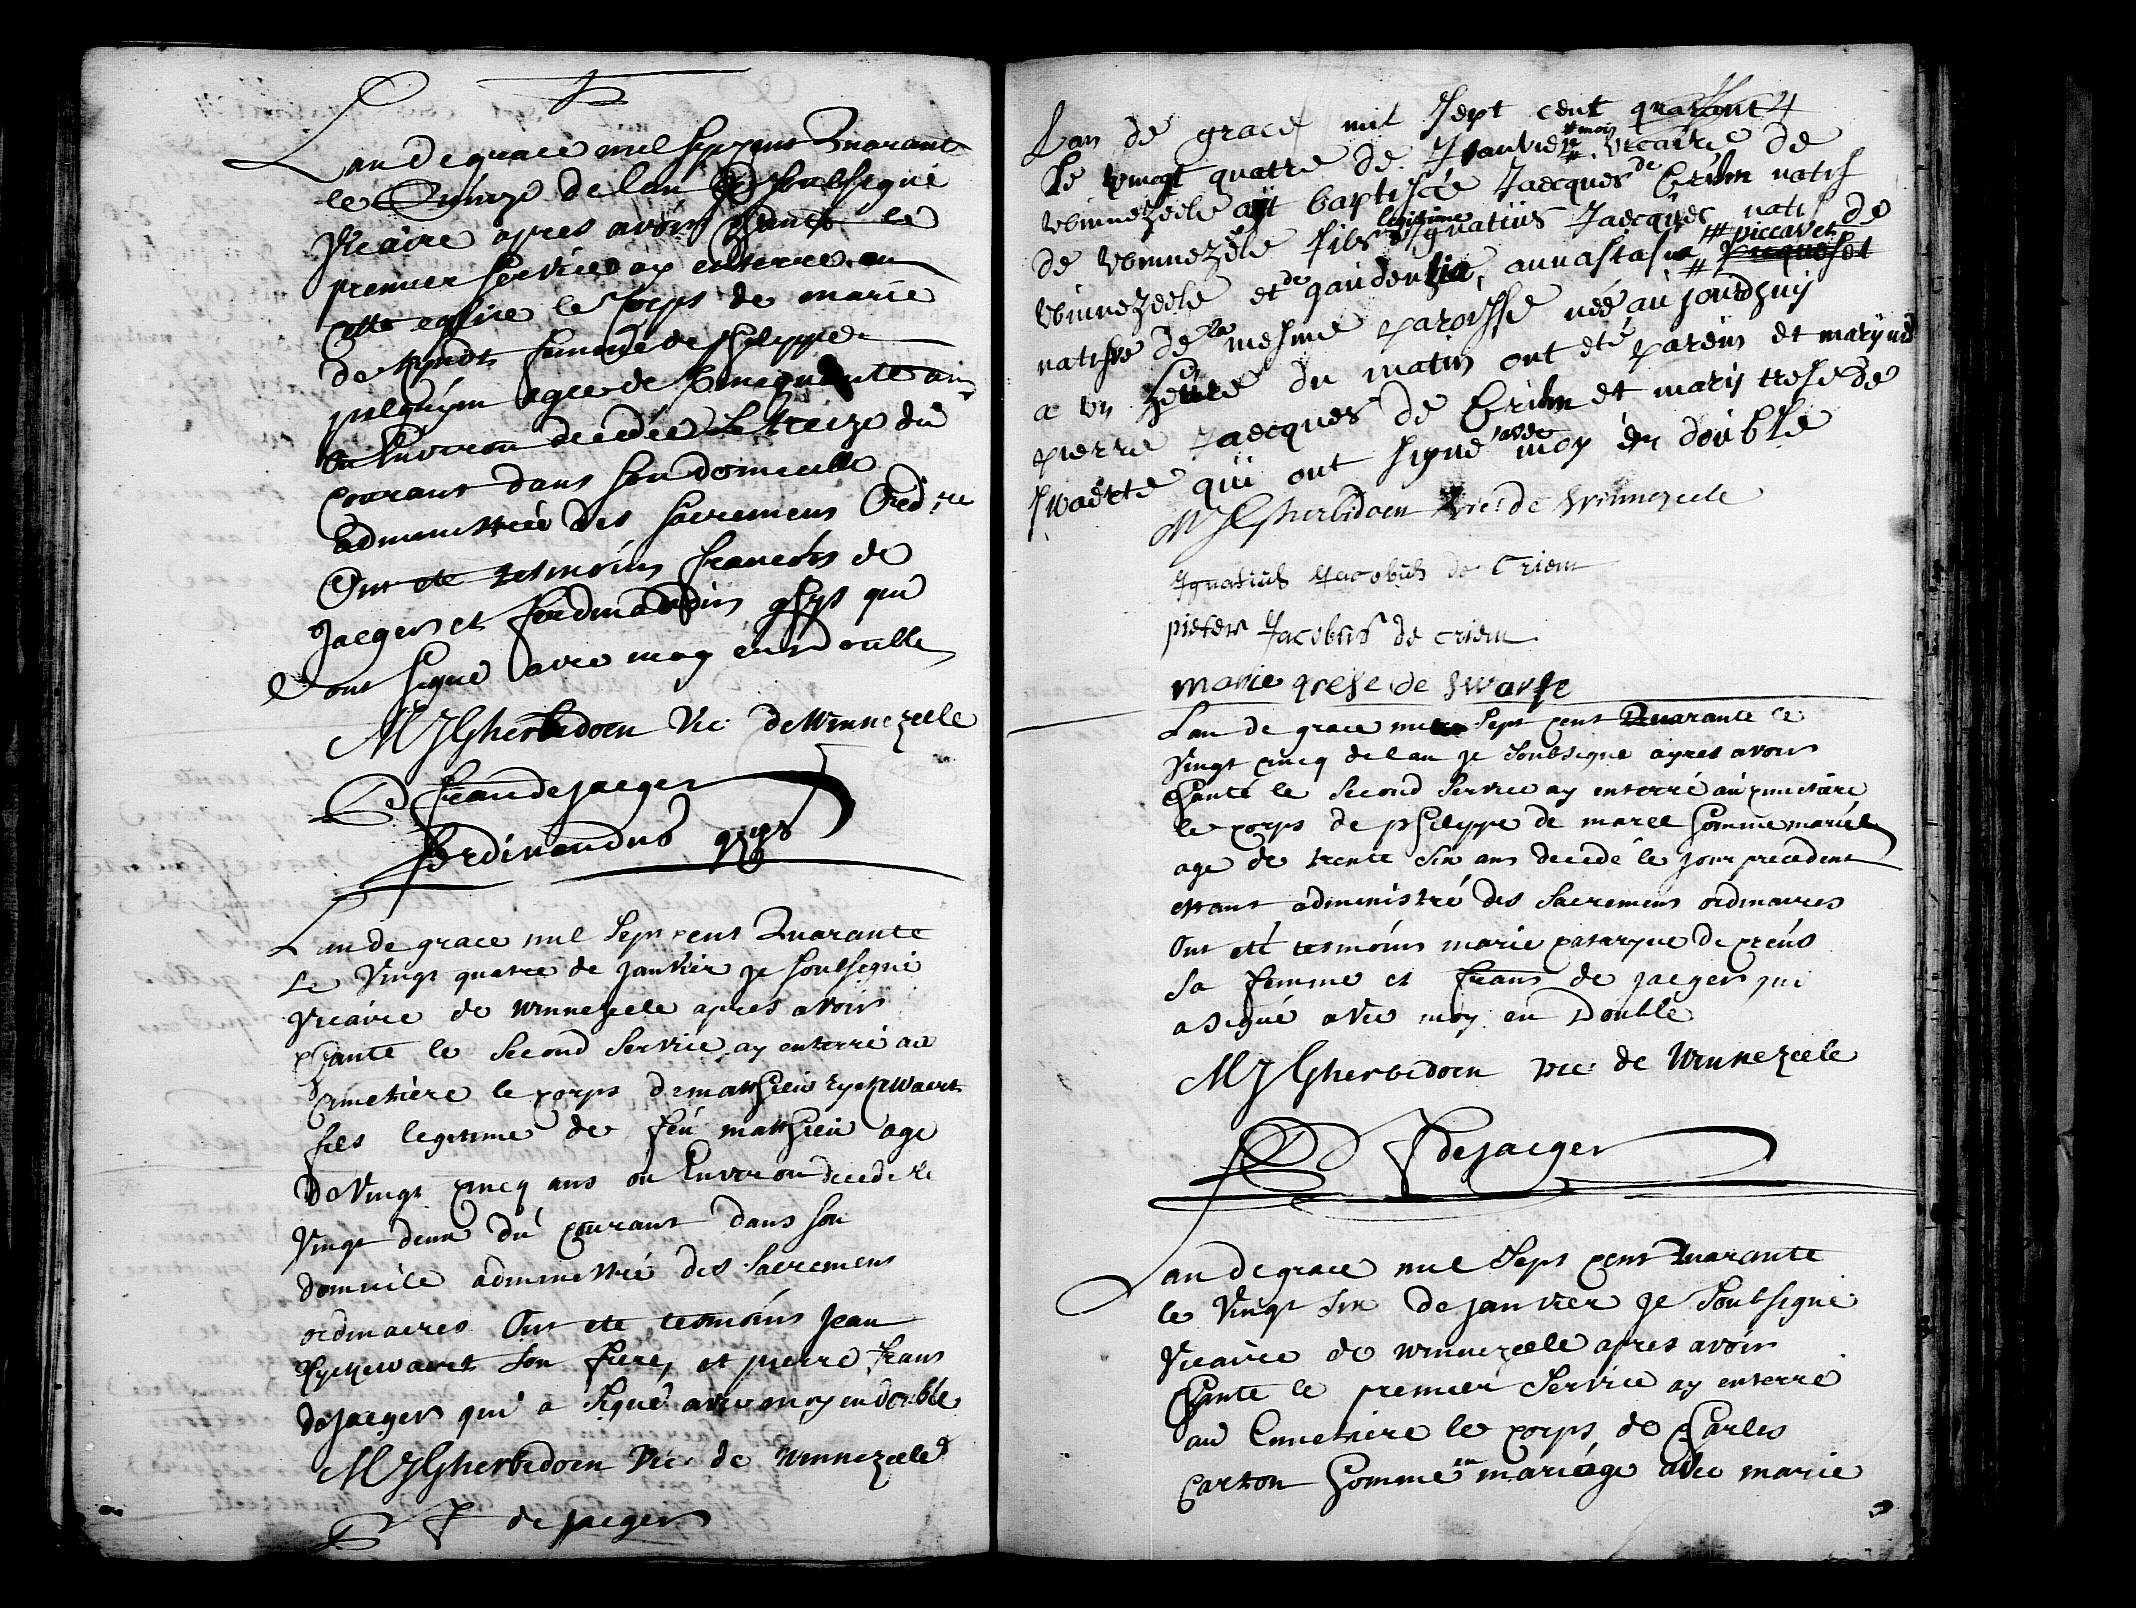 Lan de grace mil sept cent Quarant
le Quinze de lan je soubsigné
Vicaire apres avoir chanté le
premier service ay enterré en
cette eglise le corps de marie
de femme de philippe
agee de Cincquante ans
ou Environ decedée le treize du
courant dans son domicille
administrée des sacremens Ord.re
Ont ete tesmoins francois de
Jaeger et ferdinandus ghys qui
ont signé avec moy en double
M J Gherbedoen Vic: de Winnezeele
fran de jaeger
ferdinandus ghys
Lan de grace mil sept cent Quarante
Le Vingt quatre de janvier je soubsigné
Vicaire de winnezeele apres avoir
chanté le second service ay enterré au
Cimetiere le corps de matthieu ryckewaert
fils legitime de feu matthieu age
de Vingt cincq ans ou Environ decede le
Vingt deux du courant dans son
domicile administré des sacremens
ordinaires Ont ete tesmoins jean
Ryckewaert son frere, et pierre frans
de jaeger qui a signé avec moy en double
M J Gherbedoen Vic: de winnezeele
P F de jaeger
Lan de grace mil sept cent quarant
Le vingt quatre de Janvier moy vicaire de
winnezeele ay baptisée Jaecques de Criem natif
de winnezele fils legitime d'ignatius Jaecques natif de
winnezeele et de gaudentia, annastasia piccavet
natifve de la mesme paroisse née au jourdhuy
a un heure du matin ont eté parein et maryne
pierre Jaecques de Criem et marij trese de
swaerte qui ont signé avec moy en double
M J Gherbedoen Vic: de Winnezeele
Ignatius Jacobus de Criem
pieter Jacobus de criem
marie trese de swarte
Lan de grace mil sept cent Quarante le
Vingt cincq de lan je soubsigné apres avoir
chanté le second service ay enterré au cimetiere
le corps de philippe de marle homme marié
age de trente six ans decedé le jour precedent
estant administré des sacremens ordinaires
Ont eté tesmoins marie cataryne de
sa femme et frans de jaeger qui
a signé avec moy en double
M J Gherbedoen vic: de Winnezeele
P F de jaeger
Lan de grace mil sept cent Quarante
le Vingt six de janvier je soubsigné
Vicaire de winnezeele apres avoir
chanté le premier service ay enterré
au Cimetiere le corps de Charles
carton homme en mariage avec marie